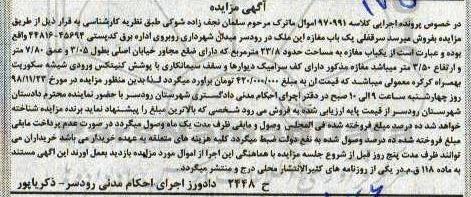 آگهی مزایده
در خصوص پرونده اجرایی کلاسه ۹۷۰۹۹۱ اموال ماترک مرحوم سلمان نجف زاده شوکی طبق نظریه کارشناسی به قرار ذیل از طریق
مزایده بفروش میرسد سرقفلی یک باب مغازه این ملک در رودسر میدان شهرداری روبروی اداره برق کدپستی ۴۵۶۹۴-۴۴۸۱۶ واقع
بوده و عبارت است از یکباب مغازه به مساحت حدود ۲۳/۸ مترمربع که دارای ضلع مجاور خیابان اصلی بطول ۳/۰۵ و عمق ۷/۸۰ متر
و ارتفاع ۳/۵۰ متر میباشد مغازه مذکور دارای کف سرامیک دیوارها و سقف سیمانکاری با پوشش کنیتکس ورودی شیشه سکوریت
بهمراه کرکره معمولی میباشد که قیمت ان به مبلغ ۴۲۰/۰۰۰/۰۰۰ تومان براورد میگردد لذا بدین منظور مزایده در مورخ ۹۸/۱۱/۲۳
روز چهارشنبه ساعت ۹ الی ۱۰ صبح در دفتر اجرای احکام مدنی دادگستری شهرستان رودسر با حضور نماینده محترم دادستان
شهرستان رودسر از قیمت پایه ارزیابی شده به فروش می رود شخصی که بالاترین مبلغ را پیشنهاد نماید برنده مزایده شناخته
خواهد شد ده درصد مبلغ فروخته شده فی المجلس وصول و مابقی ظرف مدت یک ماه وصول میگردد در صورت عدم پرداخت مابقی
مبلغ فروخته شده ده درصد وصول شده به نفع دولت ضبط میگردد کلیه هزینه های متعلقه به عهده خریدار می باشد خریداران می
توانند ظرف مدت پنج روز قبل از شروع جلسه مزایده با هماهنگی این اجرا از اموال مورد مزایده بازدید بعمل اورند این آگهی مستند
به ماده ۱۱۸ ق.م.در یکی از روزنامه های کثیرالانتشار محلی درج و منتشر میگردد
ح ۲۴۴۸ دادورز اجرای احکام مدنی رودسر- ذکریاپور